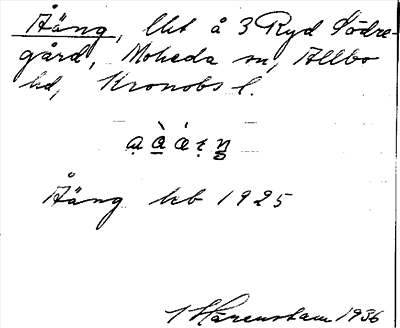 Åäng, lht å 3 Ryd Södre-
gård, Moheda sn, Allbo
hd, Kronobs l.
Åäng kb 1925
Härenstam 1936